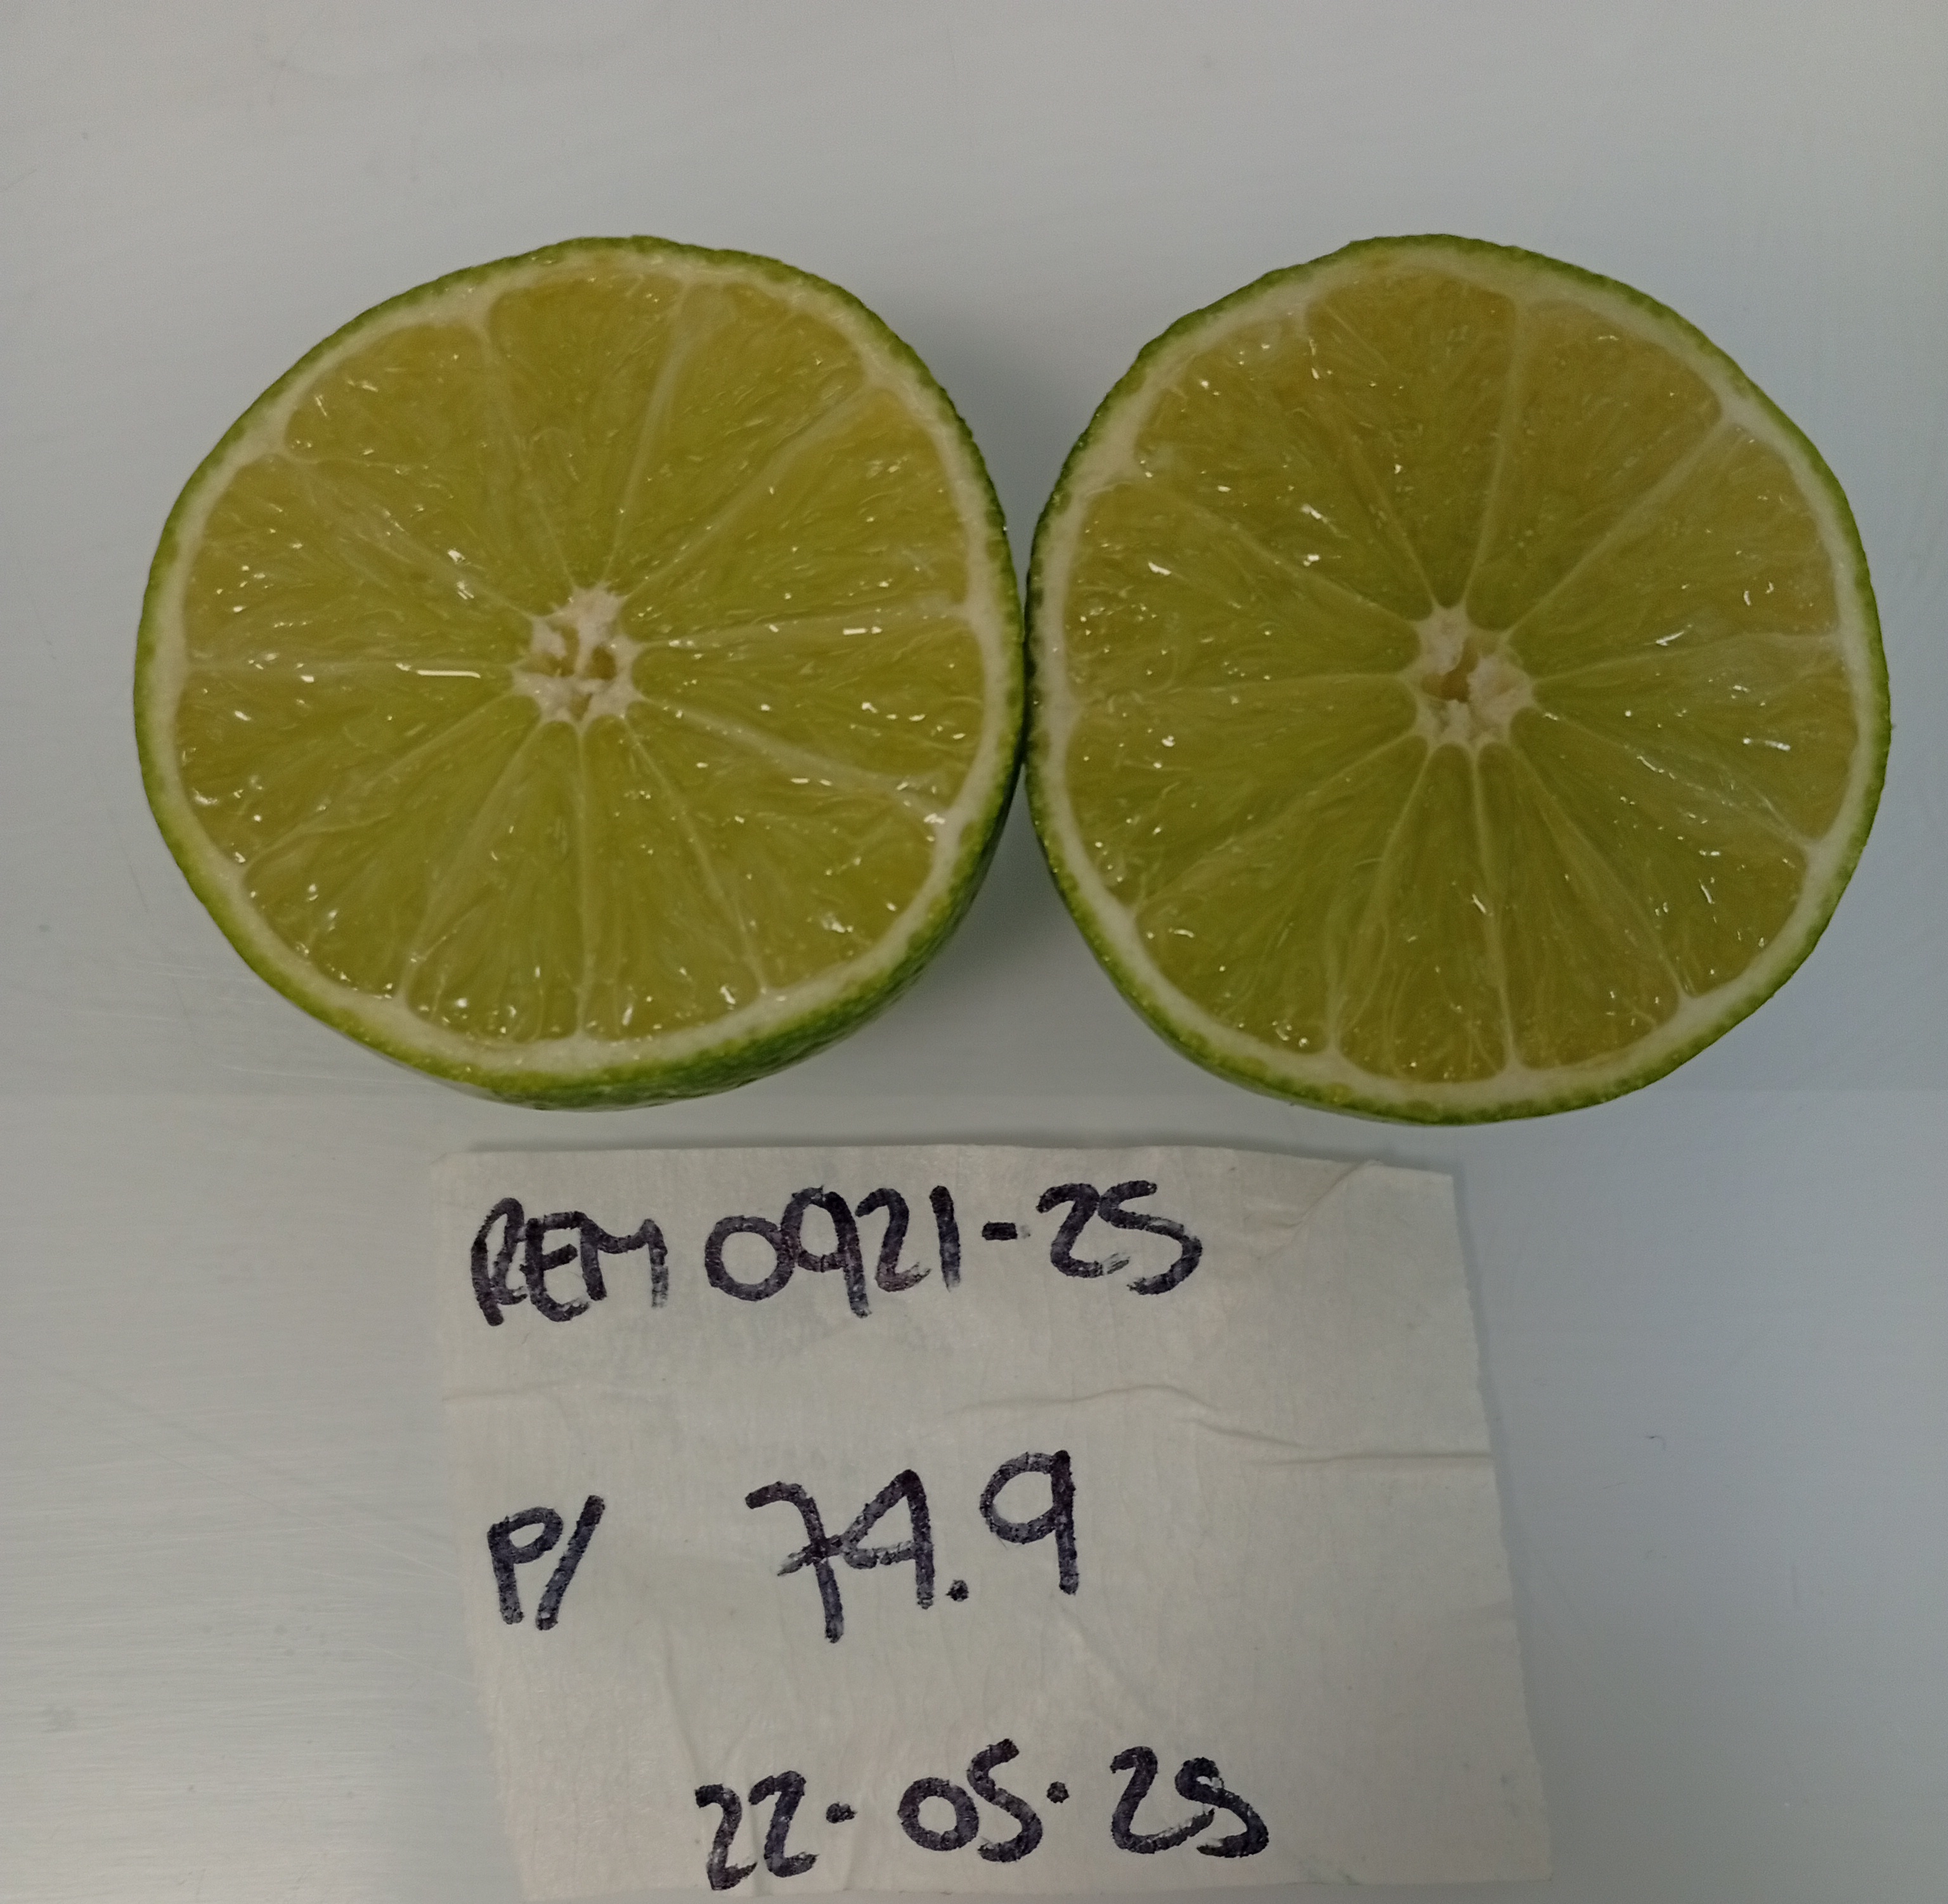 REM 0921-25
P/ 74.9
22.05.25